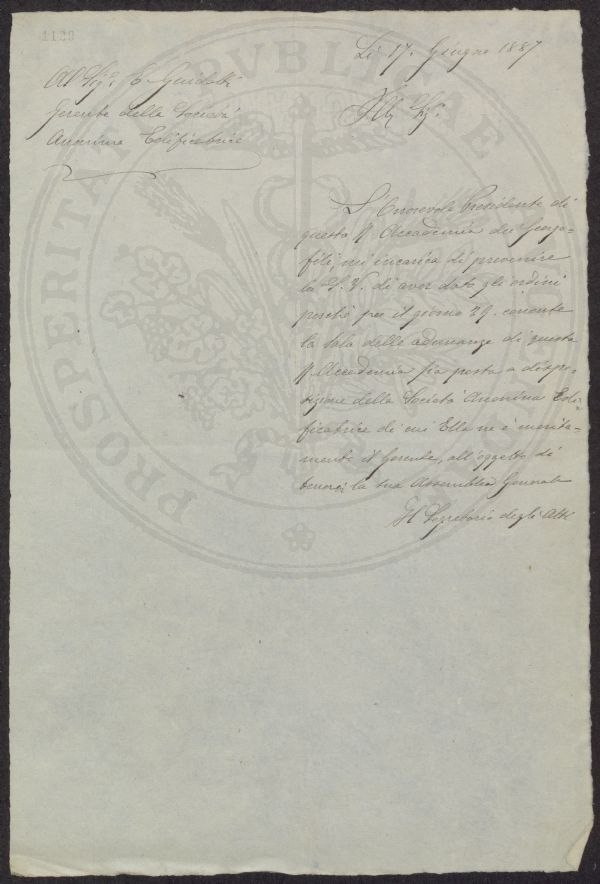 1129
Li 17. Giugno 1887
Al Sigr. E. Guidotti
Gerente della Società
Anonima Edificatrice
Ill. Sigr.
L'Onorevole Presidente di
questa R. Accademia dei Georgo-
fili, mi incarica di prevenire
la S. V. di aver dato gli ordini
perchè per il giorno 29. corrente
la sala delle adunanze di questa
R. Accademia sia posta a dispo-
sizione della Società Anonima Edi-
ficatrice di cui Ella ne è merita-
mente il Gerente, all'oggetto di
tenerci la sua Assemblea Generale
Il Segretario degli Atti
PROSPERITATI PUBLICAE